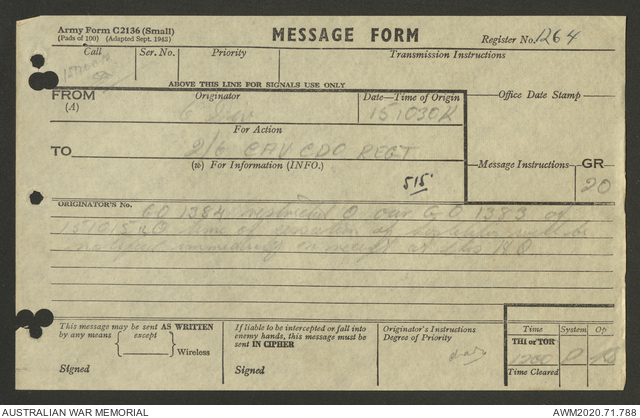 Army Form C2136 (Small)
(Pads of 100) (Adapted Sept. 1943)
MESSAGE FORM
Register No. 1264
Call
Ser. No.
Priority
Transmission Instructions
ABOVE THIS LINE FOR SIGNALS USE ONLY
FROM
(A)
Originator
Date—Time of Origin
151030K
Office Date Stamp
For Action
TO
2/6 CAV CDO REGT
(W) For Information (INFO.)
Message Instructions
GR
20
515
ORIGINATOR'S No.
GO 1384 restricted O our GO 1383 of
151015K O time of cessation of hostilities will be
notified immediately on receipt at this HQ
This message may be sent AS WRITTEN
by any means { except } Wireless
Signed
If liable to be intercepted or fall into
enemy hands, this message must be
sent IN CIPHER
Signed
Originator's Instructions
Degree of Priority
Time
System
Op
THI or TOR
1200
Time Cleared
AUSTRALIAN WAR MEMORIAL
AWM2020.71.788